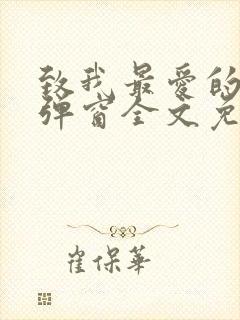 致我最爱的
弹窗全文免
崔保华